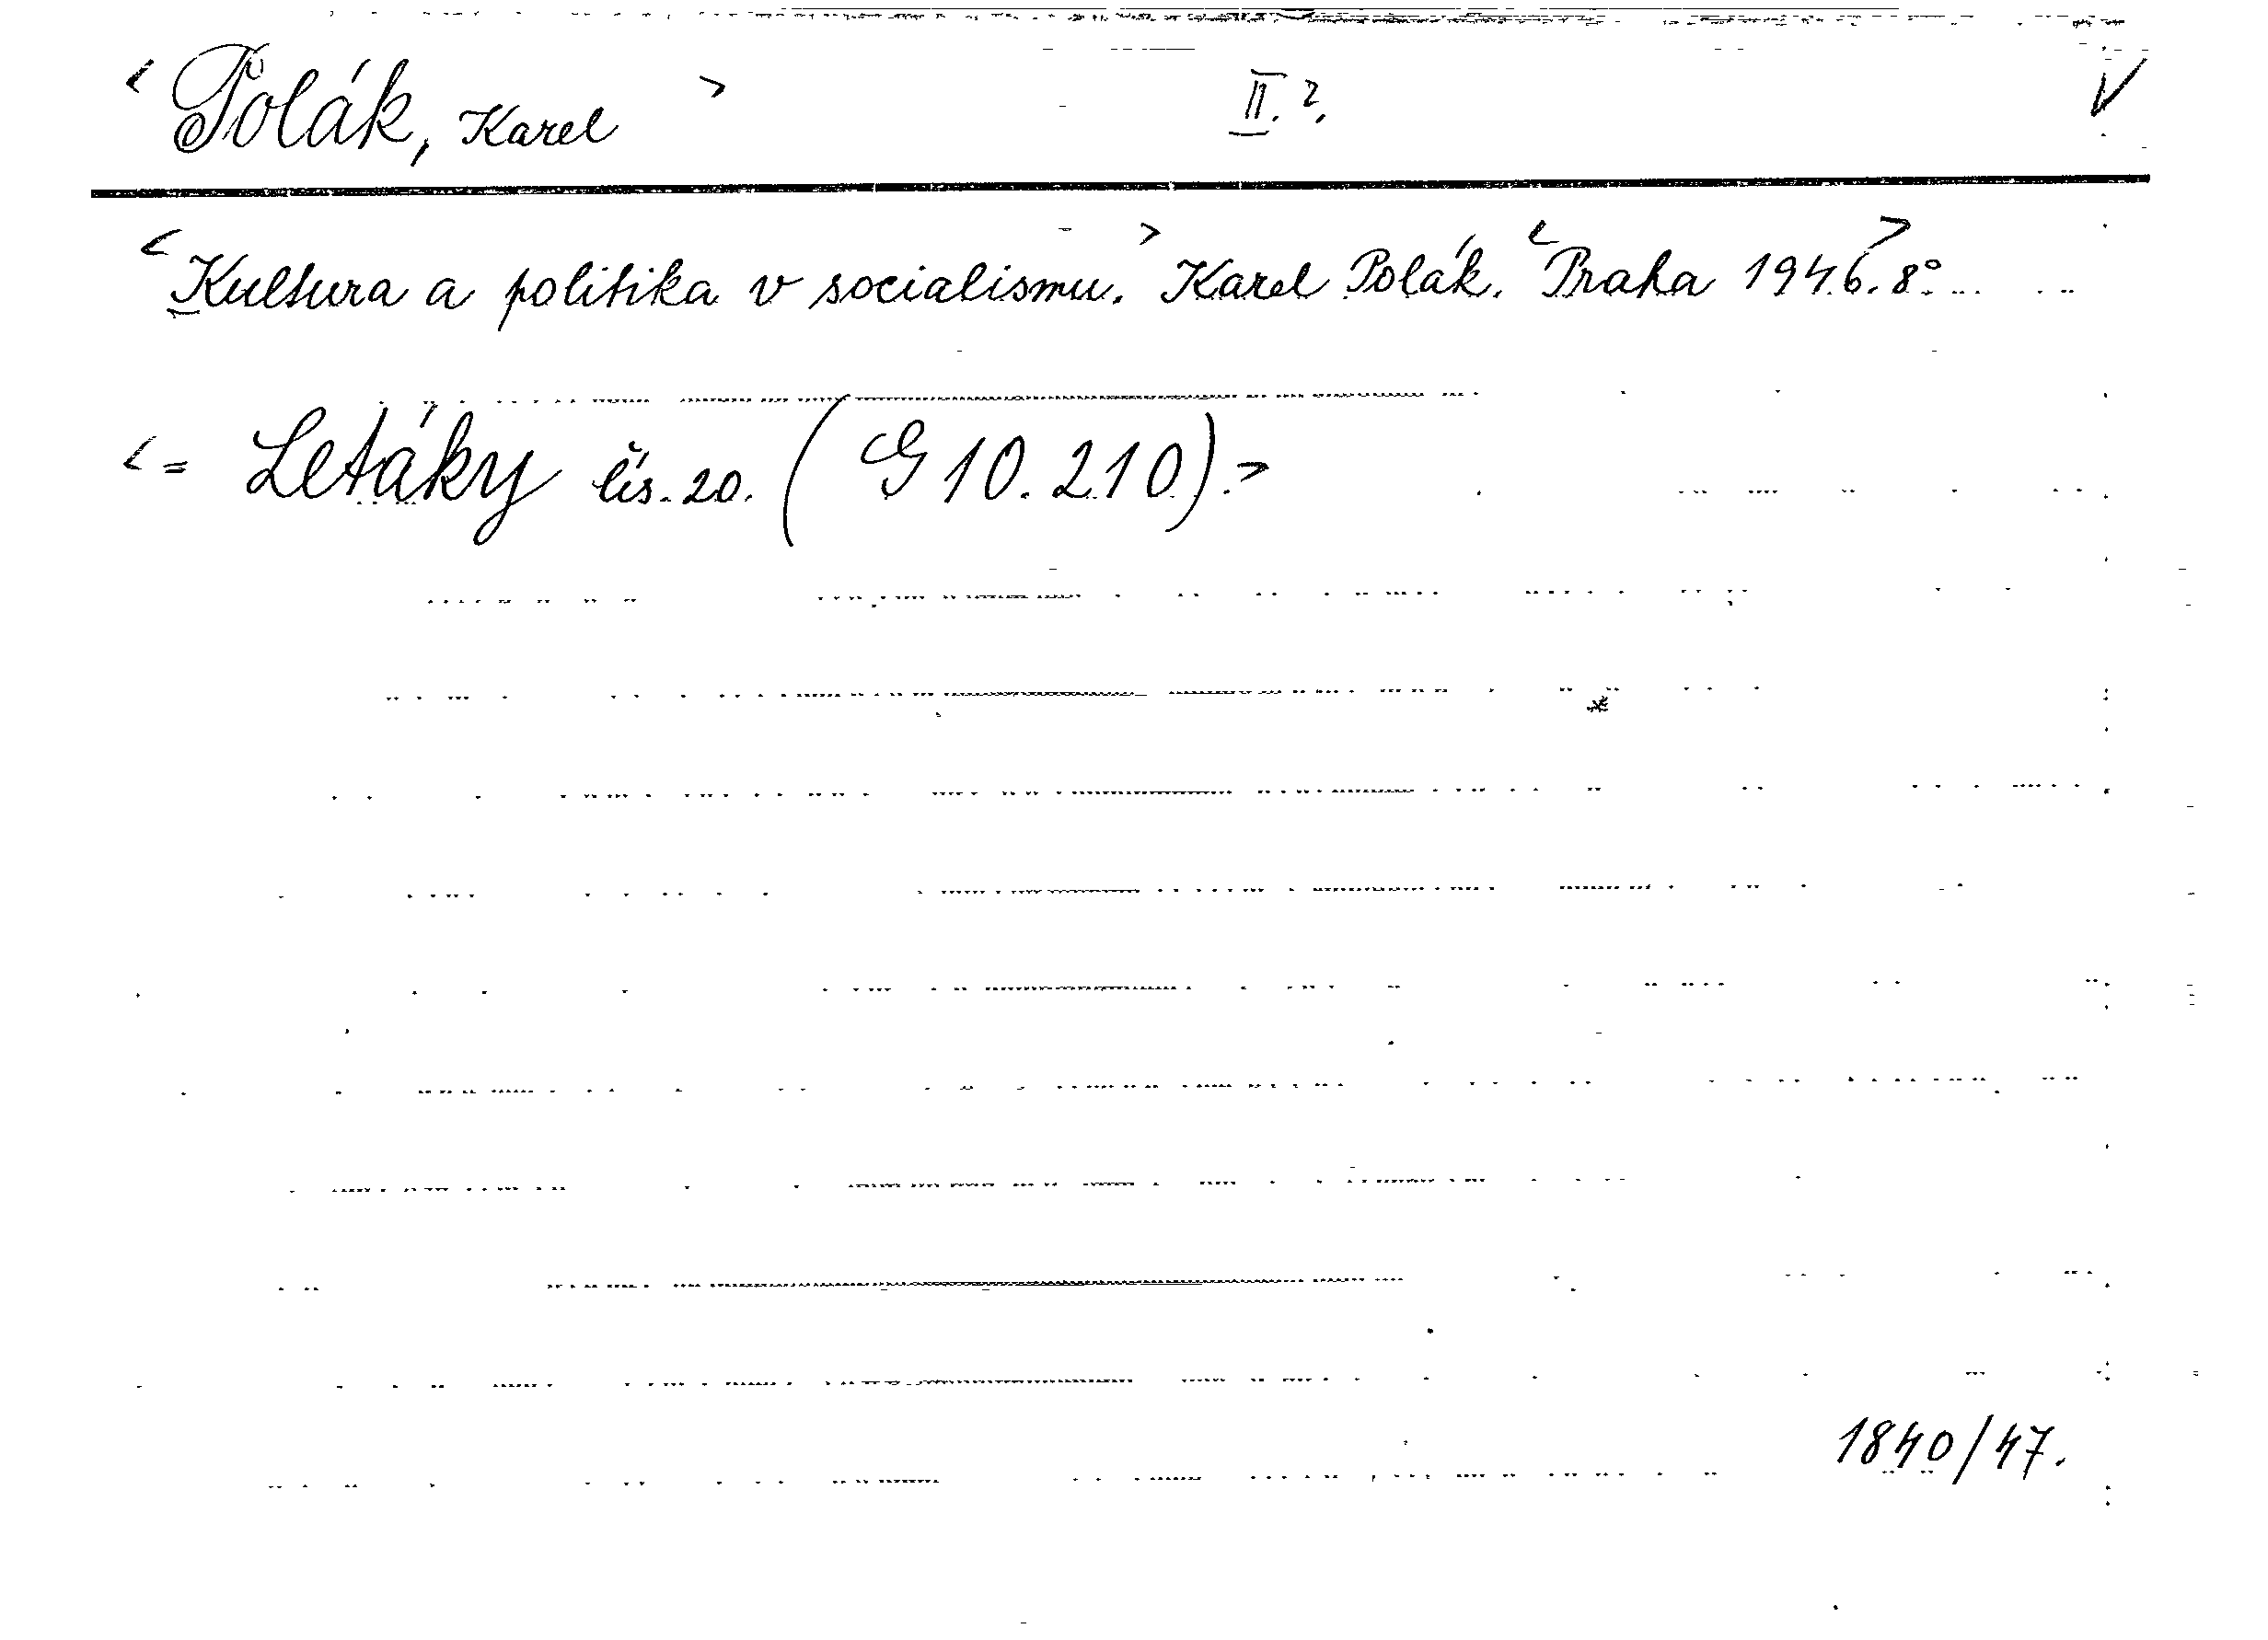 < Polák, Karel > II. 2. V
< Kultura a politika v socialismu. > Karel Polák. < Praha 1946. > 8°
< = Letáky čís. 20. (G 10.210). >
1840/47.